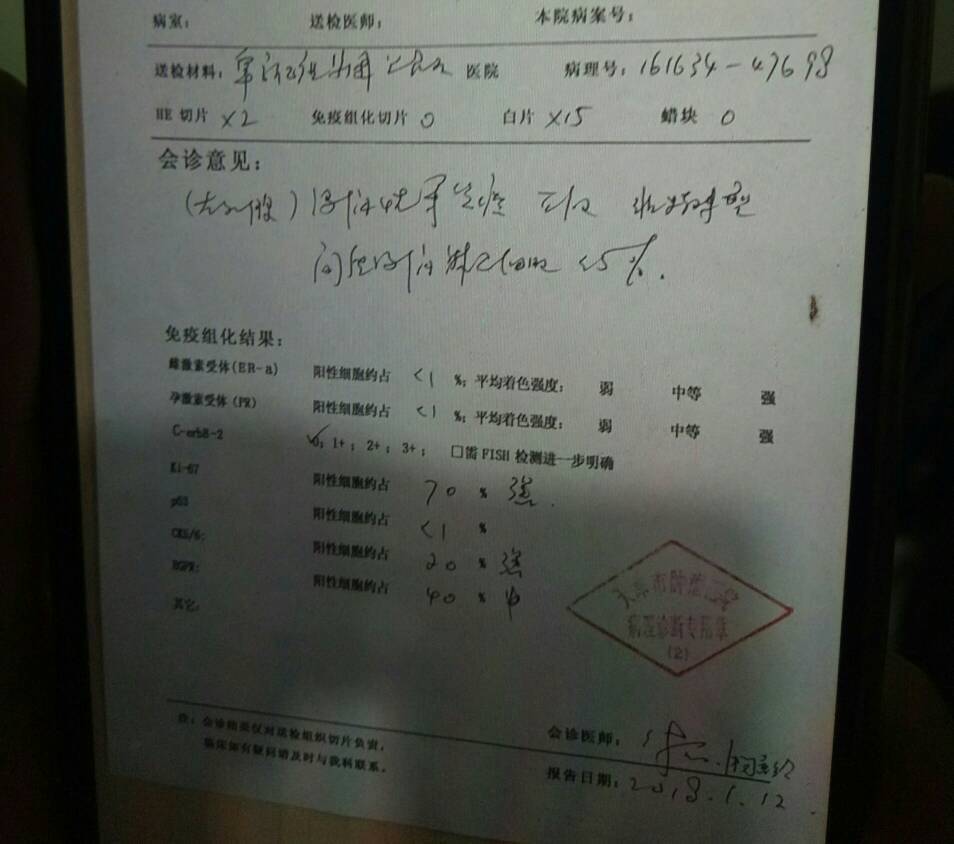 病室： 送检医师： 本院病案号：
送检材料： 医院 病理号：161634-47698
HE 切片 X2 免疫组化切片 0 白片 X15 蜡块 0
会诊意见：
浸润性 癌 III级 非特殊型
间质浸润淋巴细胞 <5%.
免疫组化结果：
雌激素受体(ER-a) 阳性细胞约占 <1 %；平均着色强度： 弱 中等 强
孕激素受体(PR) 阳性细胞约占 <1 %；平均着色强度： 弱 中等 强
C-erbB-2 ✓0；1+；2+；3+； □需 FISH 检测进一步明确
Ki-67 阳性细胞约占 70 % 强
p53 阳性细胞约占 <1 %
CK5/6: 阳性细胞约占 20 % 强
EGFR: 阳性细胞约占 40 % 中
其它:
天津市肿瘤医院
病理诊断专用章
(2)
注：会诊结果仅对送检组织切片负责，
临床如有疑问请及时与我科联系。
会诊医师：
报告日期：2018.1.12